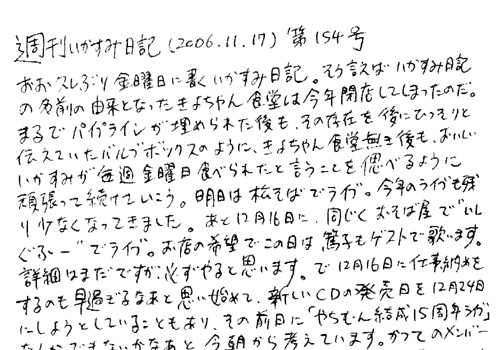 週刊いかすみ日記(2006.11.17)第154号
おお久しぶり金曜日に書くいかすみ日記。そう言えばいかすみ日記
の名前の由来となったきよちゃん食堂は今年閉店してしまったのだ。
まるでパイプラインが埋められた後も、その存在を後にひっそりと
伝えていたバルブボックスのように、きよちゃん食堂無き後も、おいしい
いかすみが毎週金曜日食べられたと言うことを偲べるように
頑張って続けていこう。明日は松そばでライブ。今年のライブも残
り少なくなってきました。あと12月16日に、同じくおそば屋で"いし
ぐふー"でライブ。お店の希望でこの日は篤子もゲストで歌います。
詳細はまだですが必ずやると思います。で12月16日に仕事納めを
するのも早過ぎるなあと思い始めて、新しいCDの発売日を12月24日
にしようとしていることもあり、その前日に「やちむん結成15周年ライブ」
なんかできないかなあと今朝から考えています。かつてのメンバー